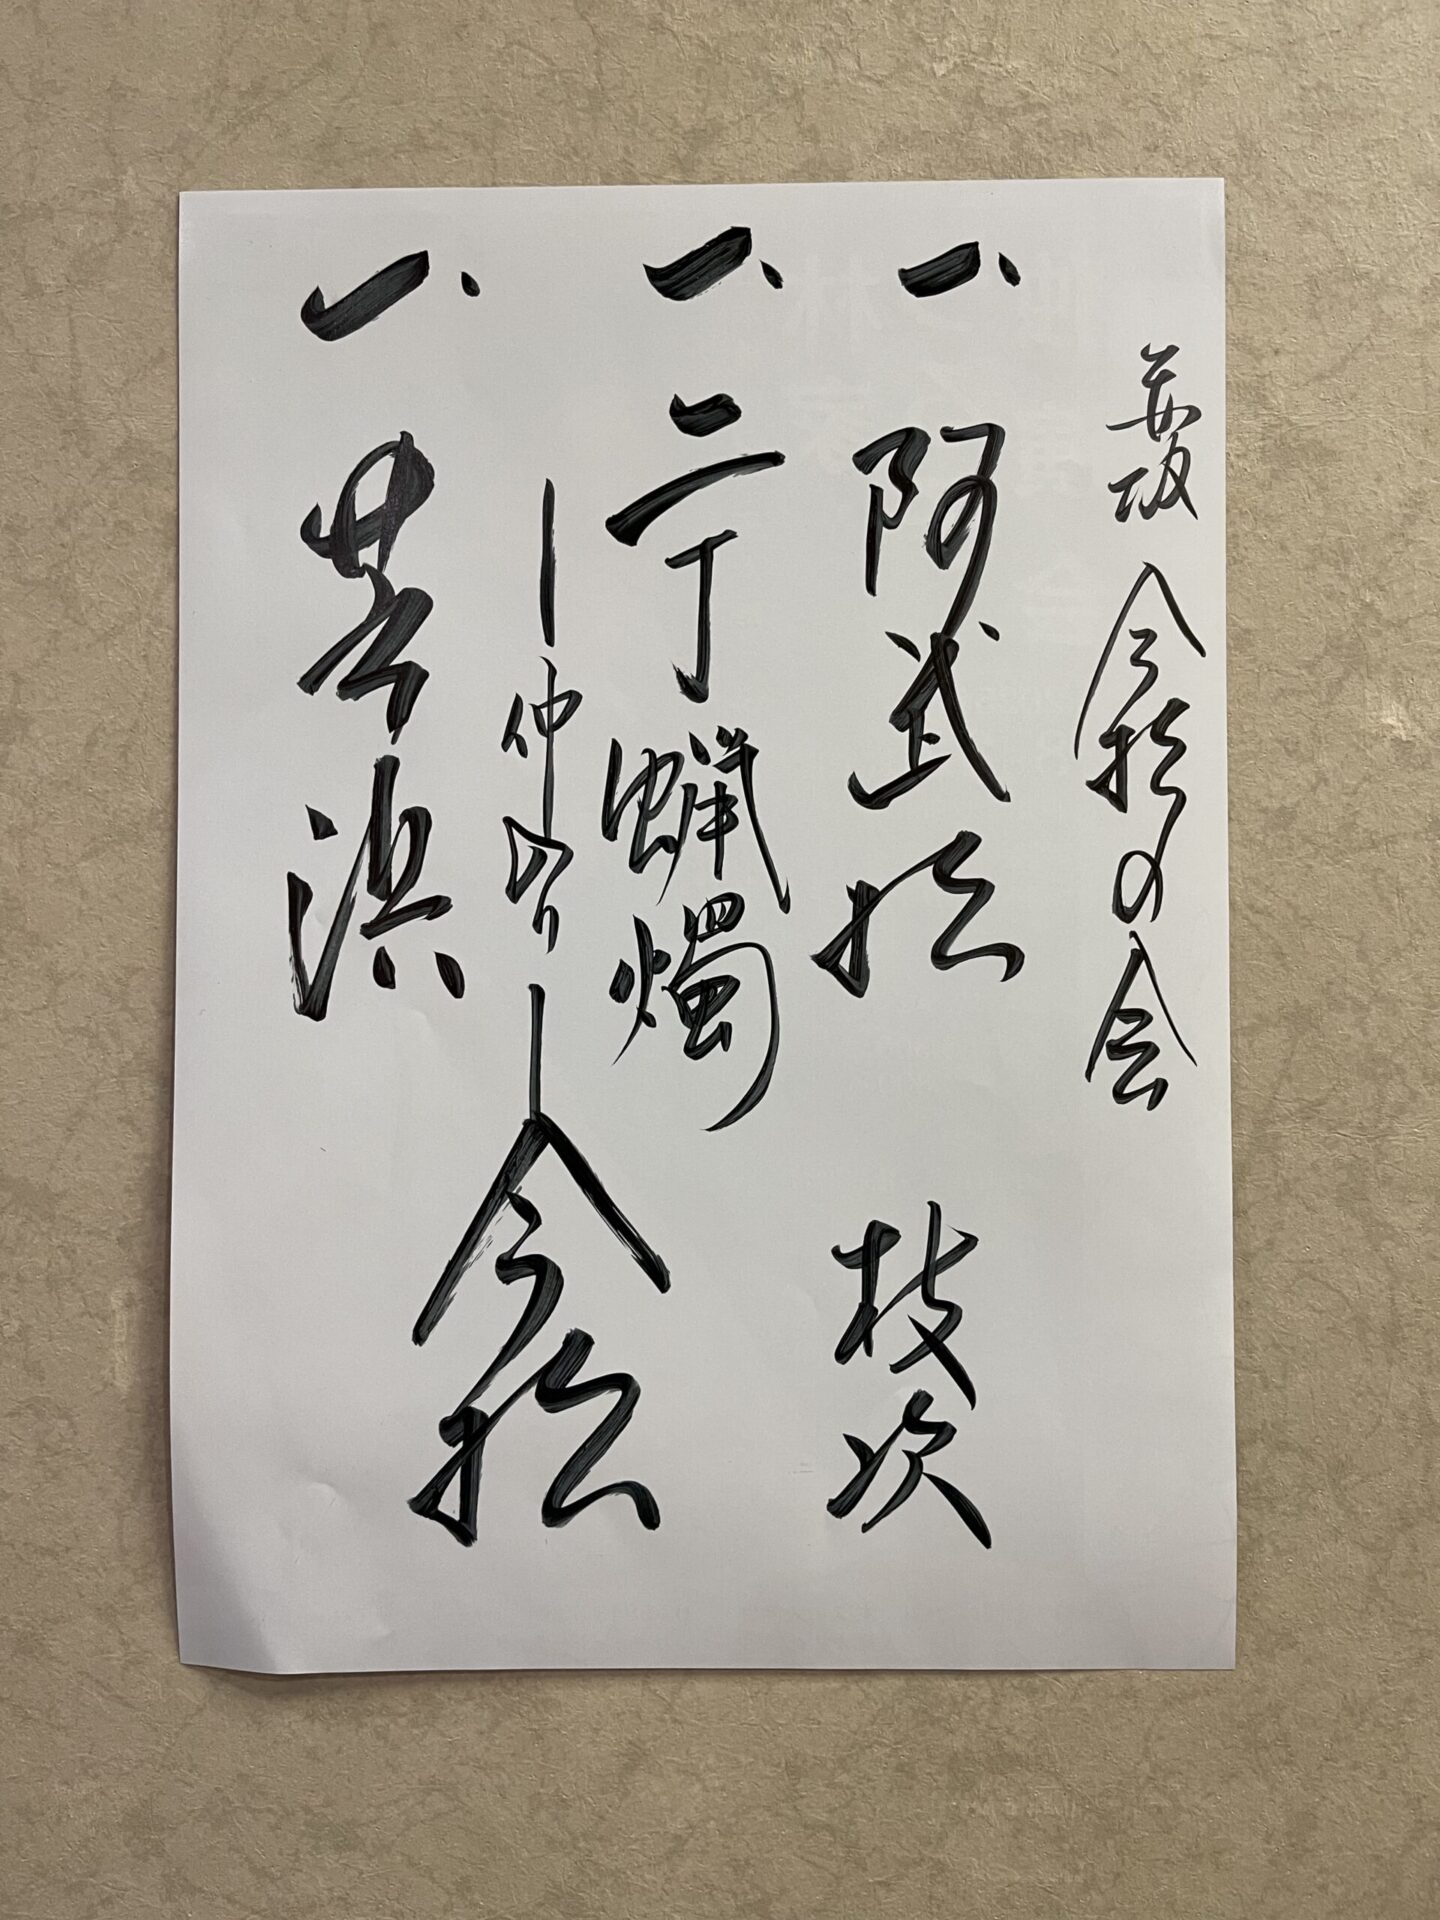 今松の会
一、阿武松 枝次
一、二丁蝋燭
仲入り
今松
一、芝浜